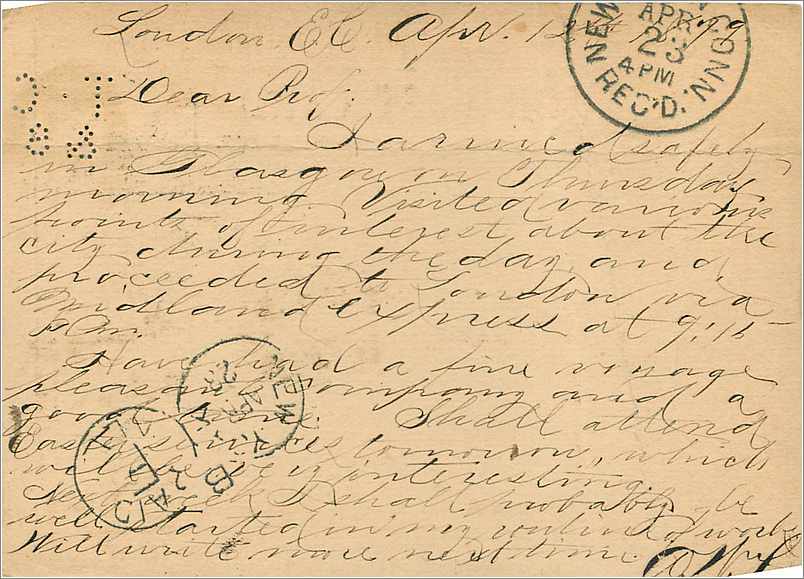 London E.C. Apr. 12th 1879
Dear Prof.
I arrived safely
in Glasgow on Thursday
morning. Visited various
points of interest about the
city during the day and
proceeded to London via
Midland express at 9:15
P.M.
Have had a fine voyage
pleasant company and a
good time. Shall attend
Easter services tomorrow, which
will be very interesting.
Next week I shall probably be
well started in my routine of work
Will write more next time.
NEW
APR
23
4 PM
REC'D.
CONN
NEW
APR
23
PAID
B
C T
&